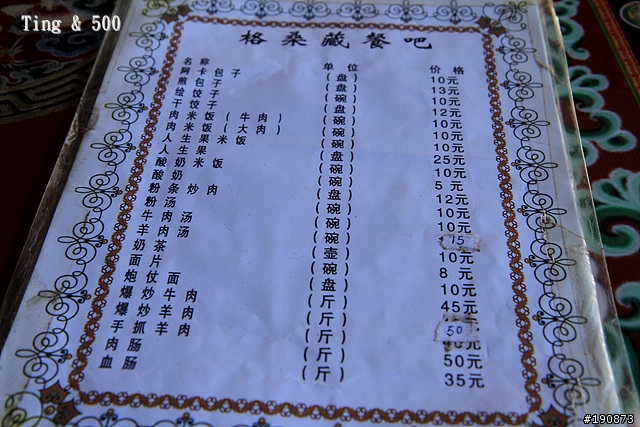 Ting & 500
格桑藏餐吧
名称 单位 价格
阿卡包子 (盘) 10元
煎包子 (盘) 13元
绘饺子 (碗) 10元
干饺子 (盘) 12元
肉米饭(牛肉) (碗) 10元
肉米饭(大肉) (碗) 10元
人生果米饭 (碗) 10元
人生果 (盘) 25元
酸奶米饭 (碗) 10元
酸奶 (碗) 5元
粉条炒肉 (盘) 12元
粉汤 (碗) 10元
牛肉汤 (碗) 10元
羊肉汤 (碗) 15
奶茶 (壶) 10元
面片 (碗) 8元
炮仗面 (盘) 10元
爆炒牛肉 (斤) 45元
爆炒羊肉 (斤) 50
手抓羊肉 (斤) 元
肉肠 (斤) 50元
血肠 (斤) 35元
#190873